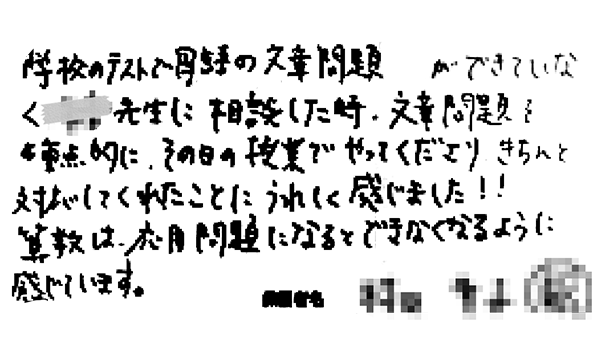 学校のテストで円錐の文章問題ができていな
く 先生に相談した時、文章問題を
重点的に、その日の授業でやってくださり、きちんと
対応してくれたことにうれしく感じました!!
算数は、応用問題になるとできなくなるように
感じています。